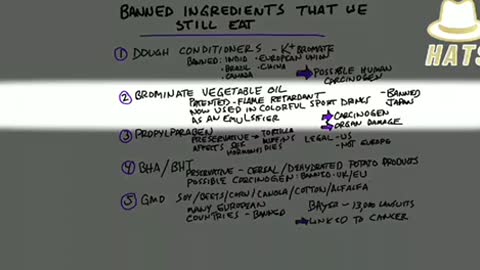 BANNED INGREDIENTS THAT WE
STILL EAT
HATS
① DOUGH CONDITIONERS - K+ BROMATE
BANNED: INDIA · EUROPEAN UNION
· BRAZIL · CHINA
· CANADA
→ POSSIBLE HUMAN
CARCINOGEN
② BROMINATE VEGETABLE OIL - BANNED
JAPAN
PATENTED - FLAME RETARDANT
NOW USED IN COLORFUL SPORT DRINKS
AS AN EMULSIFIER
→ CARCINOGEN
→ ORGAN DAMAGE
③ PROPYLPARABEN
PRESERVATIVE → TORTILLA
MUFFINS
DIES
AFFECTS SEX
HORMONES
LEGAL - US
- NOT EUROPE
④ BHA/BHT PRESERVATIVE - CEREAL/DEHYDRATED POTATO PRODUCTS
POSSIBLE CARCINOGEN: BANNED - UK/EU
⑤ GMO SOY/BEETS/CORN/CANOLA/COTTON/ALFALFA
MANY EUROPEAN
COUNTRIES - BANNED
BAYER - 13,000 LAWSUITS
→ LINKED TO CANCER